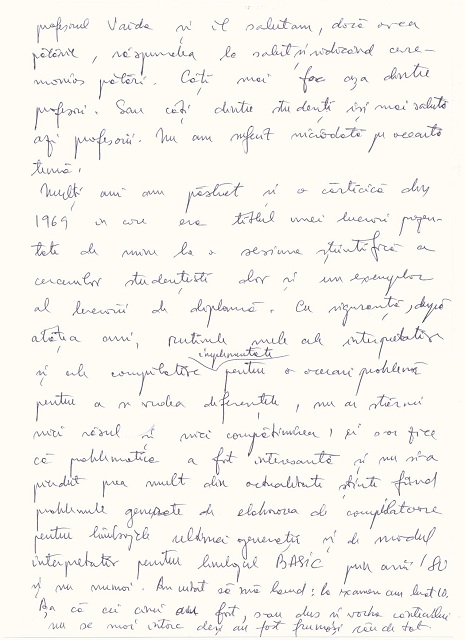 profesorul Vaida și îl salutam, dacă avea
pălărie, răspundea la salut, ridicând cere-
monios pălării. Câți mai fac așa dintre
profesori. Sau câți dintre studenți își mai salută
azi profesorii. Nu am suferit niciodată pe această
temă.
Mulți ani am păstrat și o cărticică din
1969 în care era titlul unei lucrări prezen-
tate de mine la o sesiune științifică a
cercurilor studențești dar și un exemplar
al lucrării de diplomă. Cu siguranță, după
atâția ani, rutinele mele de interpretative
și de compilative pentru o oarecare problemă
implementate
pentru a se vedea diferențele, nu ar stârni
nici râsul și nici compătimirea, și s-ar zice
că problematica a fost interesantă și nu și-a
pierdut prea mult din actualitate știute fiind
problemele generate de elaborarea de compilatoare
pentru limbajele ultimei generații și de modul
interpretativ pentru limbajul BASIC prin anii '80
și nu numai. Am uitat să mă laud: la examen am luat 10.
Așa că cei care au fost, s-au dus și vorba cântecului
nu se mai întorc deși au fost frumoși cău de tot.